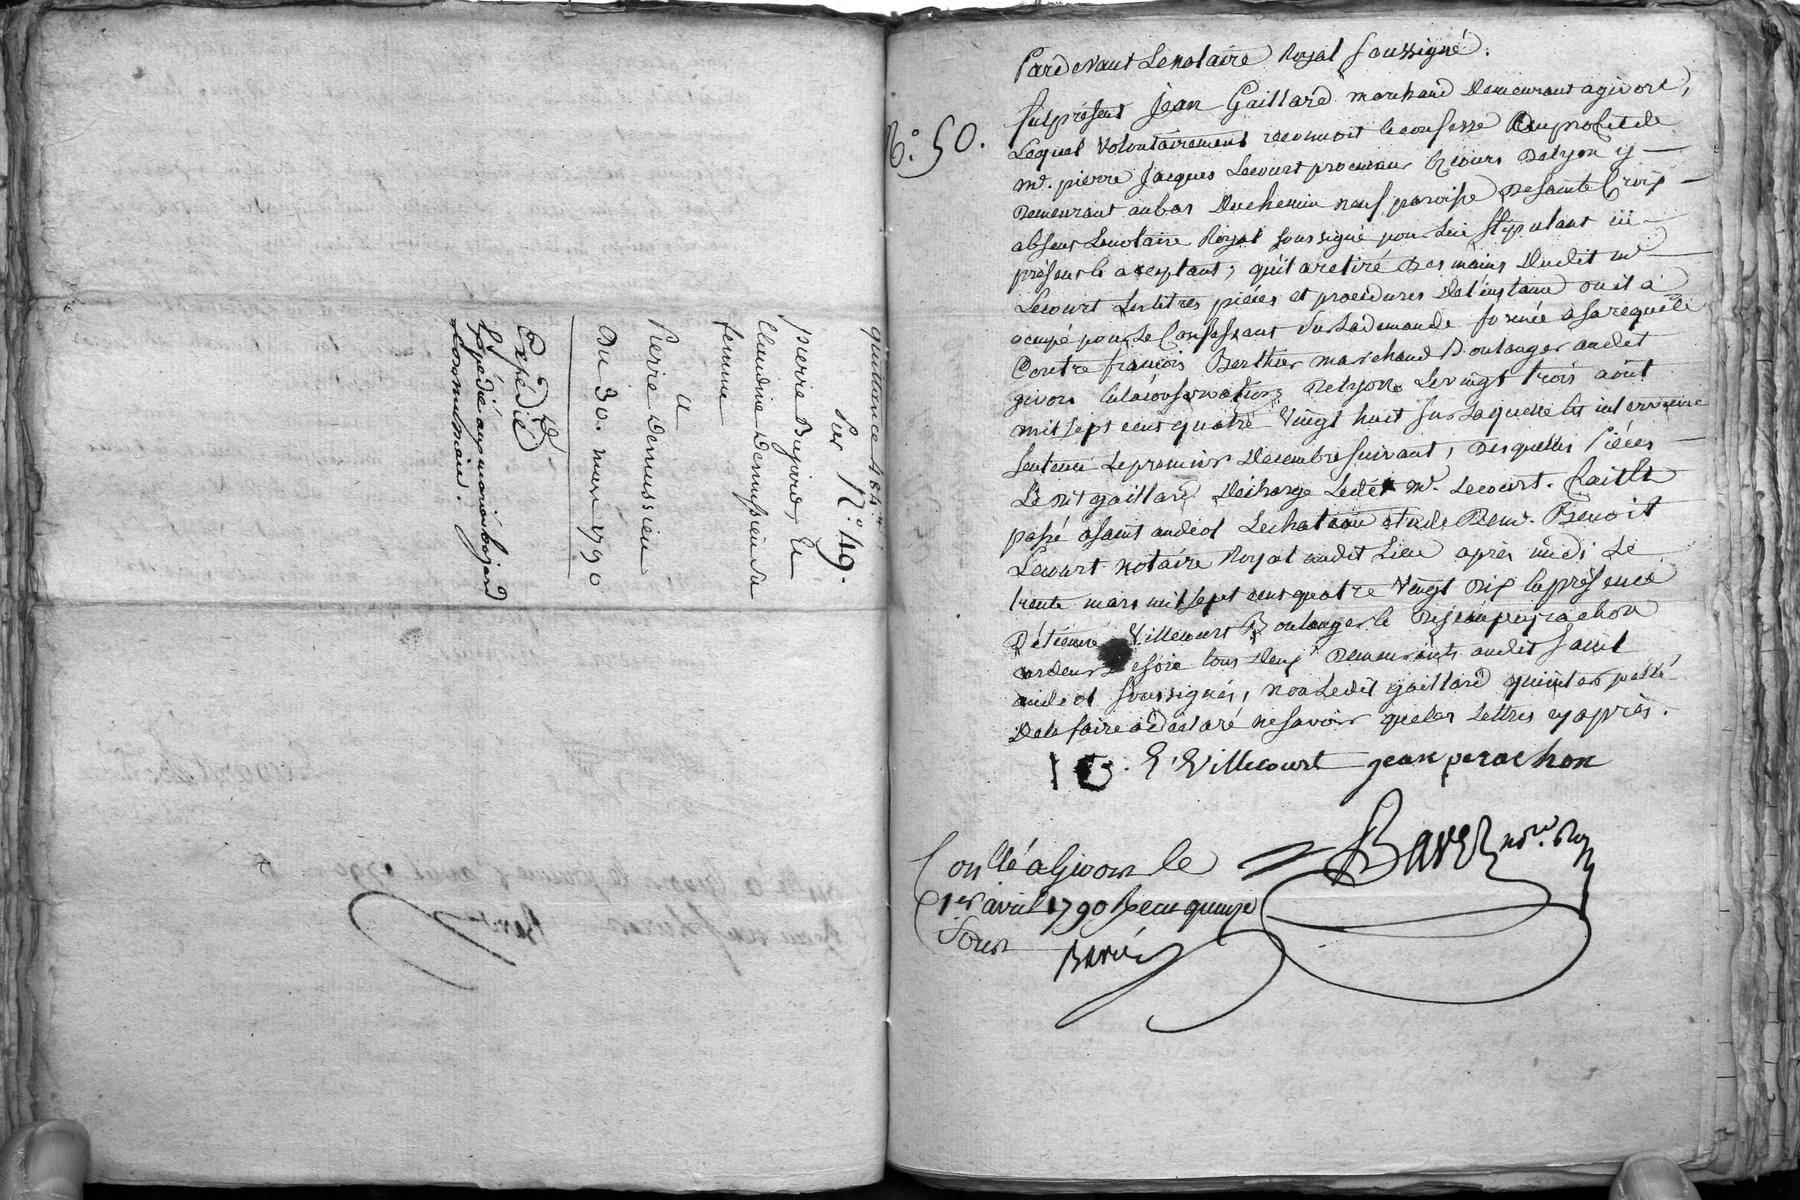 quittance 484.tt
Sur N.o 49.
pierre Bajard, et
Claudine Dermissieu sa
femme
a
Pierre Dermissieu
Du 30. mars 1790
Expédié
Expédié aux mariés bajard
N.o 50.
Pardevant Le notaire Royal soussigné.
fut présent Jean Gaillard marchand demeurant a givors,
Lequel volontairement reconnoit et confesse au profit de
me. pierre Jacques Lecourt procureur ez cours de Lyon y
demeurant au bas du chemin neuf paroisse de sainte Croix
absent Le notaire Royal soussigné pour lui stipulant ici
présent et aceptant, qu'il a retiré des mains dudit me
Lecourt Les titres pièces et procédures de l'instance ou il a
occupé pour Le Confessant sur La demande formée a sa requête
Contre françois Berthier marchand Boulanger audit
givors en la conservation de Lyon Le vingt trois août
mil sept cent quatre vingt huit sur Laquelle est intervenue
Sentence Le premier décembre suivant, desquelles Pièces
Le dit gaillard décharge Ledit me. Lecourt. fait et
passé a saint andéol Le chateau étude de me. Benoit
Lecourt notaire Royal audit Lieu après midi Le
trente mars mil sept cent quatre vingt dix en présence
d'étienne Villecourt Boulanger et de jean peyrachon
cardeur de soie tous deux demeurants audit saint
andéol soussignés, non Ledit gaillard qui interpellé
de le faire a déclaré ne savoir que les Lettres cy après.
I G. E. Villecourt jean perachon
Baver nore. Roy
Conllé a Givors le
1er avril 1790 Reçu quinze
Sous
Baver